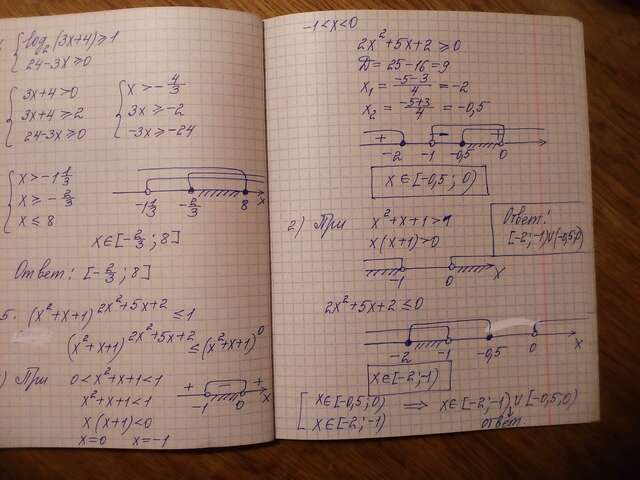 { log₂(3x+4) ≥ 1
24-3x ≥ 0
{ 3x+4 > 0
3x+4 ≥ 2
24-3x ≥ 0
{ x > -4/3
3x ≥ -2
-3x ≥ -24
{ x > -1 1/3
x ≥ -2/3
x ≤ 8
-1 1/3 -2/3 8 x
x∈[-2/3; 8]
Ответ: [-2/3; 8]
5. (x²+x+1)^(2x²+5x+2) ≤ 1
(x²+x+1)^(2x²+5x+2) ≤ (x²+x+1)⁰
) При 0 < x²+x+1 < 1
x²+x+1 < 1
x(x+1) < 0
x=0 x=-1
+ - +
-1 0 x
-1 < x < 0
2x²+5x+2 ≥ 0
D = 25-16 = 9
x₁ = (-5-3)/4 = -2
x₂ = (-5+3)/4 = -0,5
+ - +
-2 -1 -0,5 0
x∈[-0,5; 0)
2) При x²+x+1 > 1
x(x+1) > 0
Ответ:
[-2;-1)∪[-0,5;0)
-1 0 x
2x²+5x+2 ≤ 0
-2 -1 -0,5 0 x
x∈[-2;-1)
[ x∈[-0,5; 0)
x∈[-2;-1)
⟹ x∈[-2;-1) ∪ [-0,5;0)
ответ.